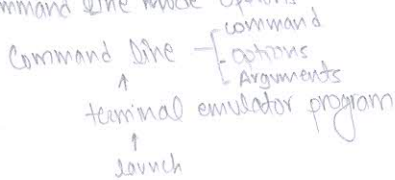 command line mode options
command
Command line - options
Arguments
terminal emulator program
launch